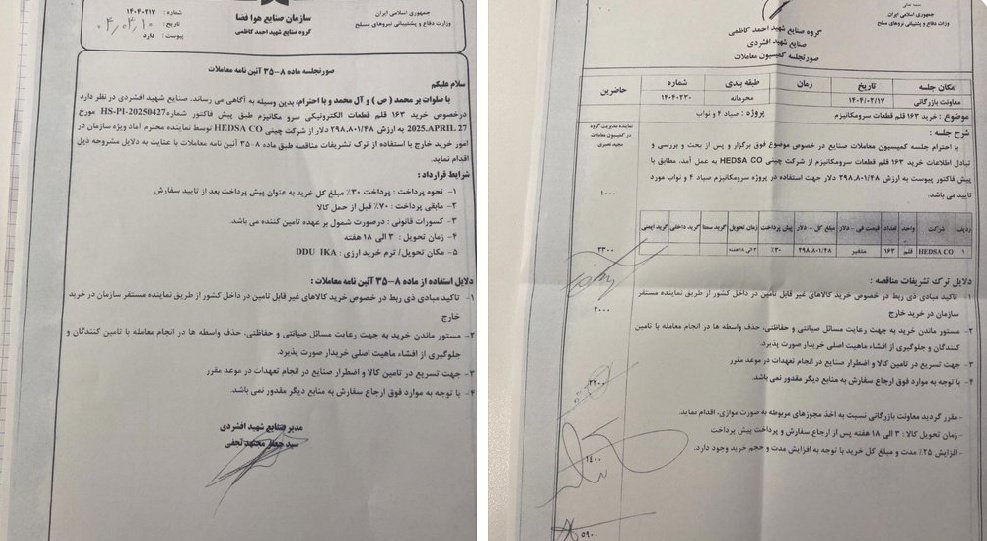 جمهوری اسلامی ایران
وزارت دفاع و پشتیبانی نیروهای مسلح
سازمان صنایع هوا فضا
گروه صنایع شهید احمد کاظمی
شماره : ۱۴۰۴۰۲۱۷
تاریخ :
پیوست : دارد
صورتجلسه ماده ۸-۳۵ آئین نامه معاملات
سلام علیکم
با صلوات بر محمد (ص) و آل محمد و با احترام، بدین وسیله به آگاهی می رساند. صنایع شهید افشردی در نظر دارد
درخصوص خرید ۱۶۳ قلم قطعات الکترونیکی سرو مکانیزم طبق پیش فاکتور شماره HS-PI-20250427 مورخ
2025.APRIL.27 به ارزش ۲۹۸.۸۰۱/۴۸ دلار از شرکت چینی HEDSA CO توسط نماینده محترم آماد ویژه سازمان در
امور خرید خارج با استفاده از ترک تشریفات مناقصه طبق ماده ۸-۳۵ آئین نامه معاملات با عنایت به دلایل مشروحه ذیل
اقدام نماید.
شرایط قرارداد :
۱- نحوه پرداخت : پرداخت ۳۰٪ مبلغ کل خرید به عنوان پیش پرداخت بعد از تایید سفارش
۲- مابقی پرداخت : ۷۰٪ قبل از حمل کالا
۳- کسورات قانونی : درصورت شمول بر عهده تامین کننده می باشد.
۴- زمان تحویل : ۳ الی ۱۸ هفته
۵- مکان تحویل/ ترم خرید ارزی : DDU IKA
دلایل استفاده از ماده ۸-۳۵ آئین نامه معاملات :
۱- تاکید مبادی ذی ربط در خصوص خرید کالاهای غیر قابل تامین در داخل کشور از طریق نماینده مستقر سازمان در خرید
خارج
۲- مستور ماندن خرید به جهت رعایت مسائل صیانتی و حفاظتی، حذف واسطه ها در انجام معامله با تامین کنندگان و
جلوگیری از افشاء ماهیت اصلی خریدار صورت پذیرد.
۳- جهت تسریع در تامین کالا و اضطرار صنایع در انجام تعهدات در موعد مقرر
۴- با توجه به موارد فوق ارجاع سفارش به منابع دیگر مقدور نمی باشد.
مدیر صنایع شهید افشردی
سید جعفر مجتهد نجفی
جمهوری اسلامی ایران
وزارت دفاع و پشتیبانی نیروهای مسلح
گروه صنایع شهید احمد کاظمی
صنایع شهید افشردی
صورتجلسه کمیسیون معاملات
مکان جلسه تاریخ زمان طبقه بندی شماره حاضرین
معاونت بازرگانی ۱۴۰۴/۰۲/۱۷ محرمانه ۱۴۰۴۰۲۳۰
موضوع : خرید ۱۶۳ قلم قطعات سرومکانیزم پروژه : صیاد ۴ و نواب
نماینده مدیریت گروه
در کمیسیون معاملات
شرح جلسه :
با احترام جلسه کمیسیون معاملات صنایع در خصوص موضوع فوق برگزار و پس از بحث و بررسی و
تبادل اطلاعات خرید ۱۶۳ قلم قطعات سرومکانیزم از شرکت چینی HEDSA CO به عمل آمد، مطابق با
پیش فاکتور پیوست به ارزش ۲۹۸.۸۰۱/۴۸ دلار جهت استفاده در پروژه سرومکانیزم صیاد ۴ و نواب مورد
تایید می باشد.
۱۰۰۰
ردیف شرکت واحد تعداد قیمت فی - دلار مبلغ کل - دلار پیش پرداخت زمان تحویل گرید سمتا گرید داخلی گرید ایمنی
۱ HEDSA CO قلم ۱۶۳ متغیر ۲۹۸.۸۰۱/۴۸ ۳۰٪ ۳ الی ۱۸ هفته
۳۳۰۰
دلایل ترک تشریفات مناقصه :
۱- تاکید مبادی ذی ربط در خصوص خرید کالاهای غیر قابل تامین در داخل کشور از طریق نماینده مستقر
سازمان در خرید خارج
۲۰۰۰
۲- مستور ماندن خرید به جهت رعایت مسائل صیانتی و حفاظتی، حذف واسطه ها در انجام معامله با تامین
کنندگان و جلوگیری از افشاء ماهیت اصلی خریدار صورت پذیرد.
۳- جهت تسریع در تامین کالا و اضطرار صنایع در انجام تعهدات در موعد مقرر
۴- با توجه به موارد فوق ارجاع سفارش به منابع دیگر مقدور نمی باشد.
۳۲۰۰
- مقرر گردید معاونت بازرگانی نسبت به اخذ مجوزهای مربوطه به صورت موازی، اقدام نماید.
- زمان تحویل کالا : ۳ الی ۱۸ هفته پس از ارجاع سفارش و پرداخت پیش پرداخت
- افزایش ۲۵٪ مدت و مبلغ کل خرید با توجه به افزایش مدت و حجم خرید وجود دارد.
۱۴۰۰
۵۹۰